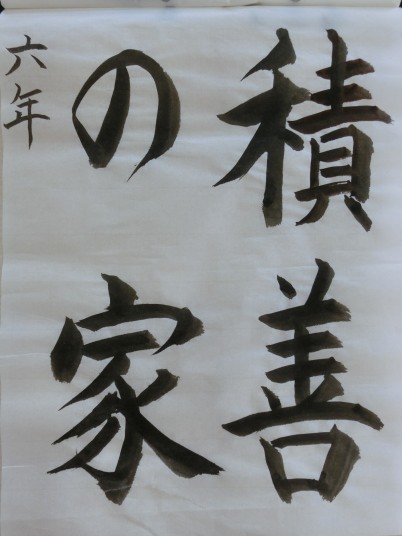 積善
の家
六年